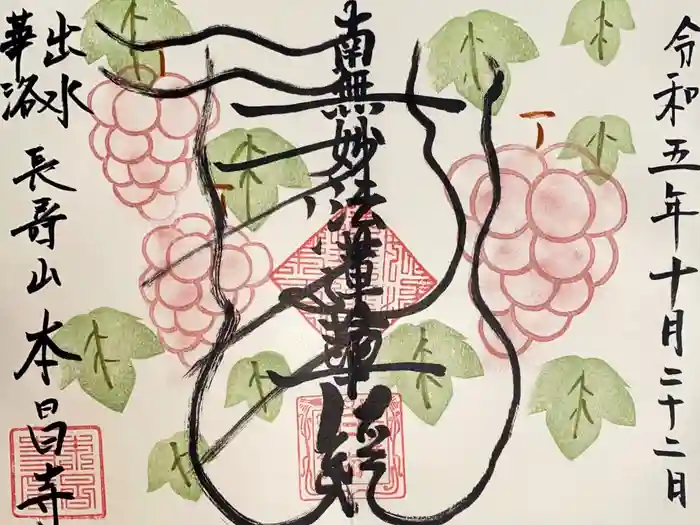 令和五年十月二十二日
南無妙法蓮華経
華洛
出水
長寿山 本昌寺